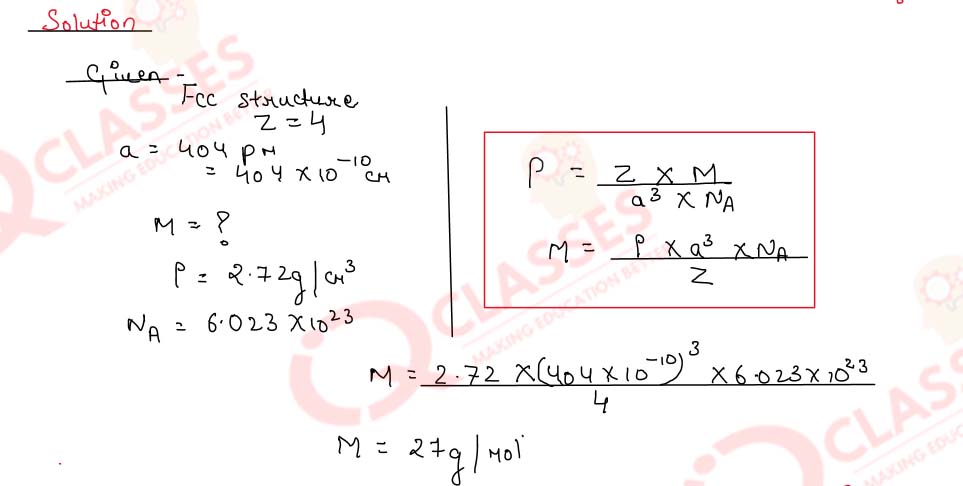 Solution
Given -
Fcc structure
Z = 4
a = 404 pm
= 404 × 10⁻¹⁰ cm
M = ?
ρ = 2.72g/cm³
N_A = 6.023 × 10²³
ρ = Z × M / a³ × N_A
M = ρ × a³ × N_A / Z
M = 2.72 × (404 × 10⁻¹⁰)³ × 6.023 × 10²³ / 4
M = 27g/mol
CLASSES
MAKING EDUCATION BETTER
CLASSES
MAKING EDUCATION BETTER
CLASS
MAKING EDUC